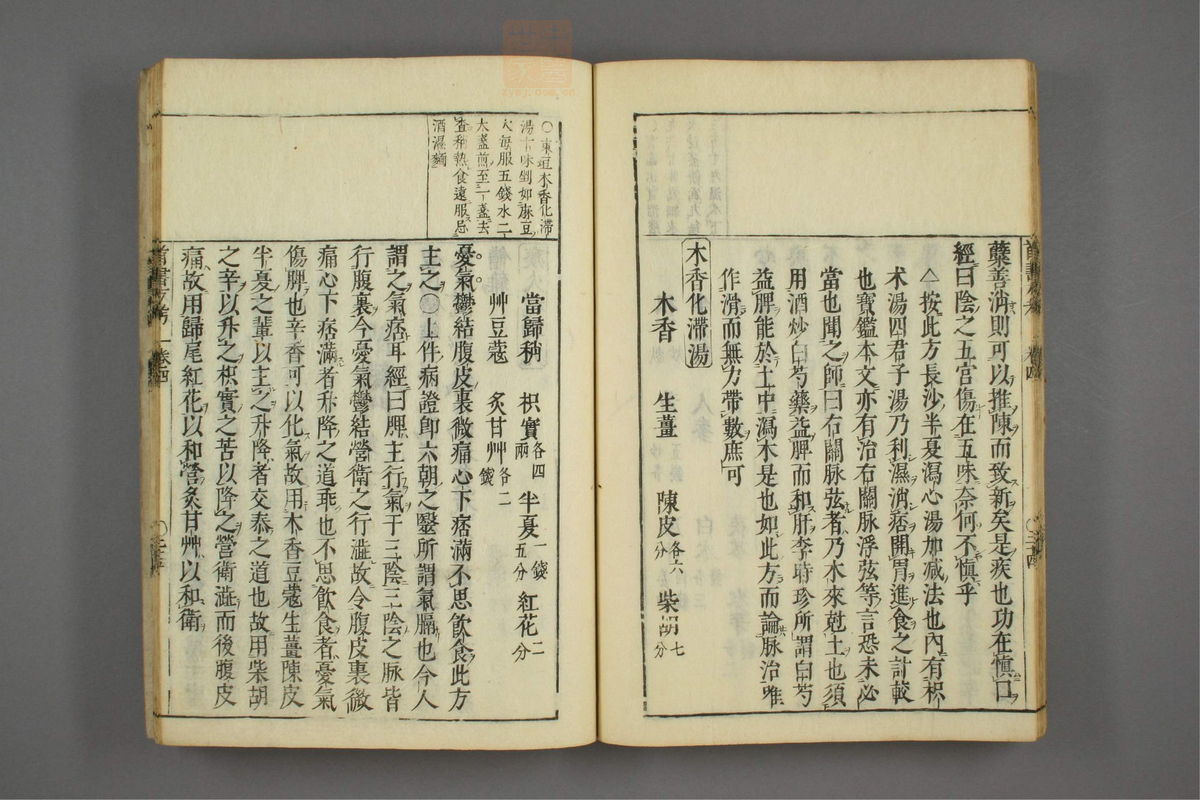 蘗善消則可以推陳而致新矣是疾也功在愼口
經曰陰之五宮傷在五味奈何不愼乎
△按此方長沙半夏瀉心湯加减法也內有枳
术湯四君子湯乃利濕消痞開胃進食之計較
也寶鑑本文亦有治右關脉浮弦等言恐未必
當也聞之師曰右關脉弦者乃木來尅土也須
用酒炒白芍藥益脾而和肝李時珍所謂白芍
益脾能於土中瀉木是也如此方而論脉治唯
作滑而無力帶數庶可
木香化滯湯
木香 生薑 陳皮各六分 柴胡七分
○東垣木香化滯
湯十味剉如麻豆
大每服五錢水二
大盞煎至一盞去
查稍熱食遠服忌
酒濕麵
當歸稍 枳實各四兩 半夏一錢五分 紅花二分
艸豆蔻 炙甘艸各二錢
憂氣鬱結腹皮裏微痛心下痞滿不思飮食此方
主之○上件病證卽六朝之醫所謂氣膈也今人
謂之氣痞耳經曰脾主行氣于三陰三陰之脉皆
行腹裏今憂氣鬱結營衛之行澁故令腹皮裏微
痛心下痞滿者升降之道乖也不思飮食者憂氣
傷脾也辛香可以化氣故用木香豆蔻生薑陳皮
半夏之輩以主之升降者交泰之道也故用柴胡
之辛以升之枳實之苦以降之營衛澁而後腹皮
痛故用歸尾紅花以和營炙甘艸以和衛